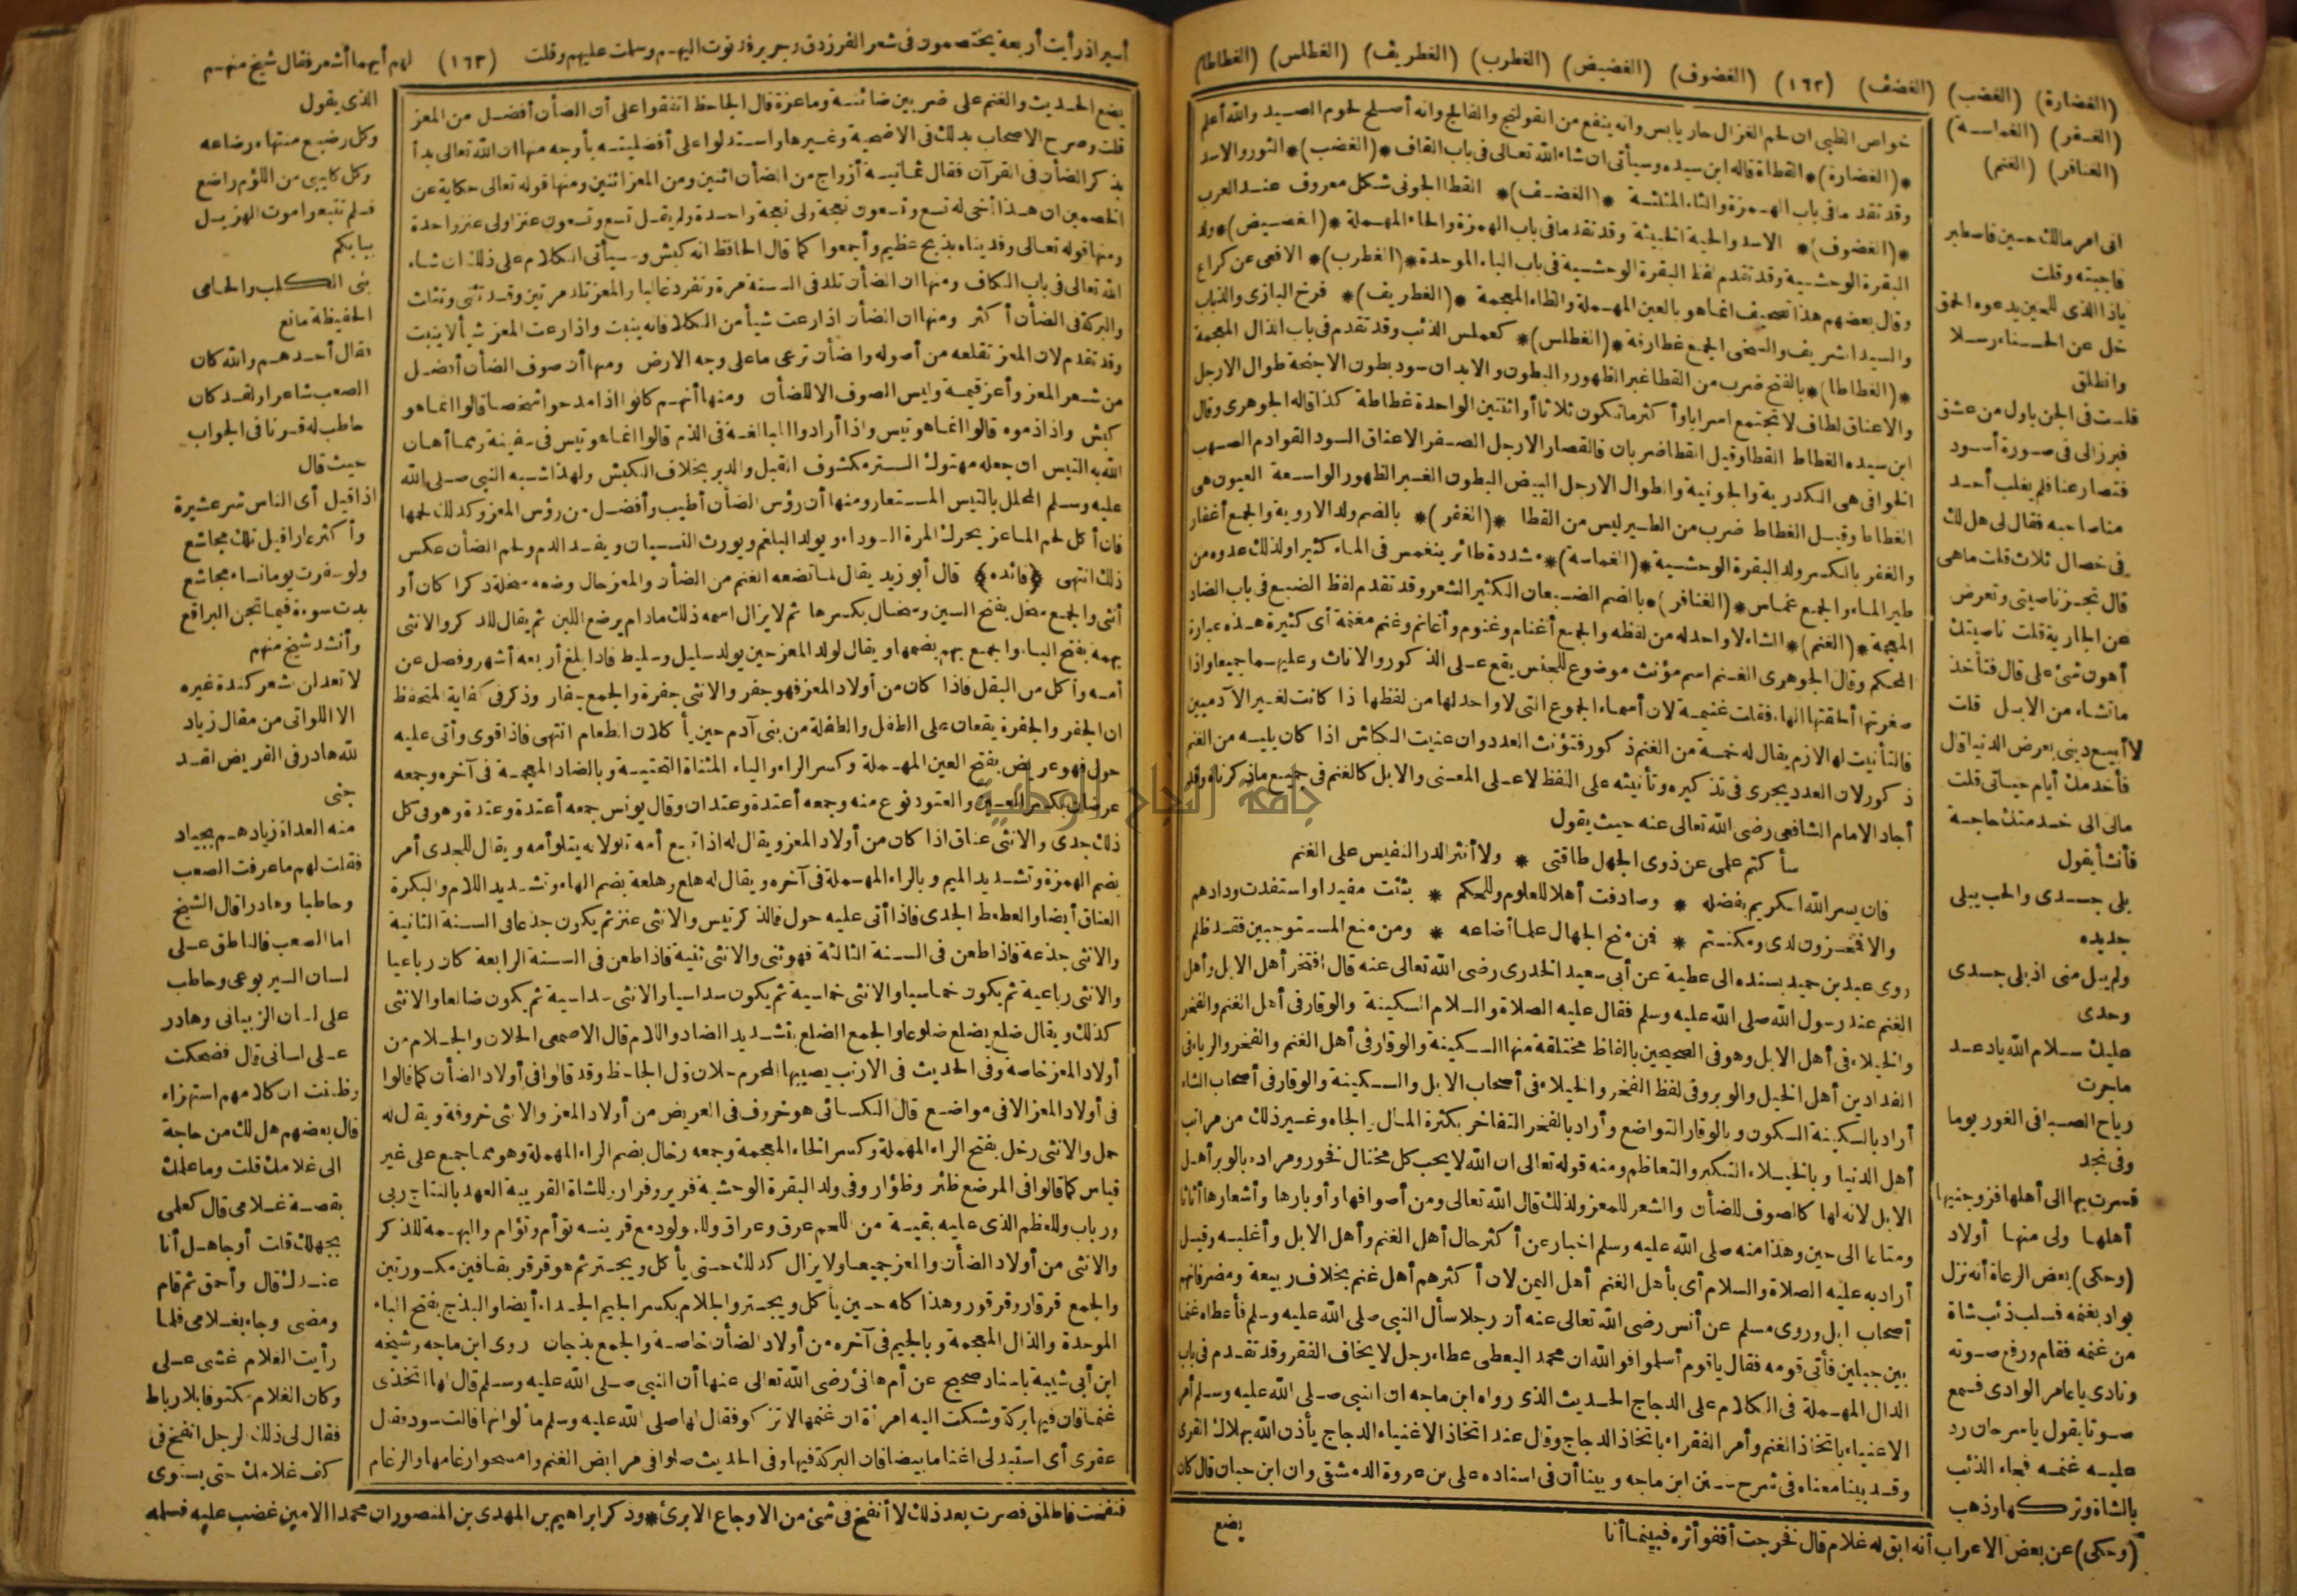 (الغضارة) (الغضب) (الغضف) (١٦٢) (الغضوف) (الغضيض) (الغطرب) (الغطريف) (الغطلس) (الغطاطا)
(الغفر) (الغماسة)
(الغنافر) (الغنم)
خواص الظبى ان لحم الغزال حار يابس وانه ينفع من القولنج والفالج وانه أصلح لحوم الصيد والله أعلم
*(الغضارة)* القطاة قاله ابن سيده وسيأتى ان شاء الله تعالى فى باب القاف *(الغضب)* الثور والاسد
وقد تقدما فى باب الهمزة والثاء المثلثة *(الغضف)* القطا الجونى شكل معروف عند العرب
*(الغضوف)* الاسد والحية الخبيثة وقد تقدما فى باب الهمزة والحاء المهملة *(الغضيض)* ولد
البقرة الوحشية وقد تقدم لفظ البقرة الوحشية فى باب الباء الموحدة *(الغطرب)* الافعى عن كراع
وقال بعضهم هذا تصحيف انما هو بالعين المهملة والظاء المعجمة *(الغطريف)* فرخ البازى والذباب
والسيد الشريف والسخى الجمع غطارفة *(الغطلس)* كعملس الذئب وقد تقدم فى باب الذال المعجمة
*(الغطاطا)* بالفتح ضرب من القطا غبر الظهور والبطون والابدان سود بطون الاجنحة طوال الارجل
والاعناق لطاف لا تجتمع اسرابا وأكثر ما تكون ثلاثا أو اثنتين الواحدة غطاطة كذا قاله الجوهرى وقال
ابن سيده الغطاط القطا وقيل القطا ضربان فالقصار الارجل الصفر الاعناق السود القوادم الصهب
الخوافى هى الكدرية والجونية والطوال الارجل البيض البطون الغبر الظهور الواسعة العيون هى
الغطاط وقيل الغطاط ضرب من الطير ليس من القطا *(الغفر)* بالضم ولد الاروية والجمع أغفار
والغفر بالكسر ولد البقرة الوحشية *(الغماسة)* مشددة طائر ينغمس فى الماء كثيرا ولذلك عدوه من
طير الماء والجمع غماس *(الغنافر)* بالضم الضبعان الكثير الشعر وقد تقدم لفظ الضبع فى باب الضاد
المعجمة *(الغنم)* الشاء لا واحد له من لفظه والجمع أغنام وغنوم وأغانم وغنم مغنمة أى كثيرة هذه عبارة
المحكم وقال الجوهرى الغنم اسم مؤنث موضوع للجنس يقع على الذكور والاناث وعليهما جميعا واذا
صغرتها ألحقتها الهاء فقلت غنيمة لان أسماء الجموع التى لا واحد لها من لفظها اذا كانت لغير الآدميين
فالتأنيث لها لازم يقال له خمسة من الغنم ذكور فتؤنث العدد وان عنيت الكباش اذا كان يليه من الغنم
ذكور لان العدد يجرى فى تذكيره وتأنيثه على اللفظ لا على المعنى والابل كالغنم فى جميع ما ذكرناه وقد
أجاد الامام الشافعى رضى الله تعالى عنه حيث يقول
سأكتم علمى عن ذوى الجهل طاقتى * ولا أنثر الدر النفيس على الغنم
فان يسر الله الكريم بفضله * وصادفت أهلا للعلوم وللحكم * بثثت مفيدا واستفدت ودادهم
والا فمخزون لدى ومكتتم * فمن منح الجهال علما أضاعه * ومن منع المستوجبين فقد ظلم
روى عبد بن حميد بسنده الى عطية عن أبى سعيد الخدرى رضى الله تعالى عنه قال افتخر أهل الابل وأهل
الغنم عند رسول الله صلى الله عليه وسلم فقال عليه الصلاة والسلام السكينة والوقار فى أهل الغنم والفخر
والخيلاء فى أهل الابل وهو فى الصحيحين بالفاظ مختلفة منها السكينة والوقار فى أهل الغنم والفخر والرياء فى
الفدادين أهل الخيل والوبر وفى لفظ الفخر والخيلاء فى أصحاب الابل والسكينة والوقار فى أصحاب الشاء
أراد بالسكينة السكون وبالوقار التواضع وأراد بالفخر التفاخر بكثرة المال والجاه وغير ذلك من مراتب
أهل الدنيا وبالخيلاء التكبر والتعاظم ومنه قوله تعالى ان الله لا يحب كل مختال فخور ومراده بالوبر أهل
الابل لانه لها كالصوف للضأن والشعر للمعز ولذلك قال الله تعالى ومن أصوافها وأوبارها وأشعارها أثاثا
ومتاعا الى حين وهذا منه صلى الله عليه وسلم اخبار عن أكثر حال أهل الغنم وأهل الابل وأغلبه وقيل
أراد به عليه الصلاة والسلام أى بأهل الغنم أهل اليمن لان أكثرهم أهل غنم بخلاف ربيعة ومضر فانهم
أصحاب ابل وروى مسلم عن أنس رضى الله تعالى عنه أن رجلا سأل النبى صلى الله عليه وسلم فأعطاه غنما
بين جبلين فأتى قومه فقال يا قوم أسلموا فو الله ان محمدا ليعطى عطاء رجل لا يخاف الفقر وقد تقدم فى باب
الدال المهملة فى الكلام على الدجاج الحديث الذى رواه ابن ماجه ان النبى صلى الله عليه وسلم أمر
الاغنياء باتخاذ الغنم وأمر الفقراء باتخاذ الدجاج وقال عند اتخاذ الاغنياء الدجاج يأذن الله بهلاك القرى
وقد بينا معناه فى شرح سنن ابن ماجه وبينا أن فى اسناده على بن عروة الدمشقى وان ابن حبان قال كان
يضع
انى امر مالك حسين فاصطبر
فاجبته وقلت
ياذا الذى للحين يدعوه الحمق
خل عن الحسناء رسلا
وانطلق
فبرز الى فى صورة أسود
فتصارعنا فلم يغلب أحد
منا صاحبه فقال لى هل لك
فى خصال ثلاث قلت ماهى
قال تجز ناصيتى وتعرض
عن الجارية قلت ناصيتك
أهون شئ على قال فتأخذ
ما تشاء من الابل قلت
لا أبيع دينى بعرض الدنيا قال
فأخدمك أيام حياتى قلت
مالى الى خدمتك حاجة
فأنشأ يقول
بلى جسدى والحب يبلى
جديده
ولم يبل منى اذ بلى جسدى
وحدى
عليك سلام الله يا دعد
ما جرت
رياح الصبا فى الغور يوما
وفى نجد
فسرت بها الى أهلها فزوجنيها
أهلها ولى منها أولاد
(وحكى) بعض الرعاة أنه نزل
بواد بغنمه فسلب ذئب شاة
من غنمه فقام ورفع صوته
ونادى يا عامر الوادى فسمع
صوتا يقول يا سرحان رد
عليه غنمه فجاء الذئب
بالشاة وتركها وذهب
(وحكى) عن بعض الاعراب أنه ابق له غلام قال فخرجت أقفو أثره فبينما أنا
أسير اذ رأيت أربعة يختصمون فى شعر الفرزدق وجرير فدنوت اليهم وسلمت عليهم وقلت (١٦٣) لهم أيهما أشعر فقال شيخ منهم
يضع الحديث والغنم على ضربين ضائنة وماعزة قال الجاحظ اتفقوا على أن الضأن أفضل من المعز
قلت وصرح الاصحاب بذلك فى الاضحية وغيرها واستدلوا على أفضليته بأوجه منها ان الله تعالى بدأ
بذكر الضأن فى القرآن فقال ثمانية أزواج من الضأن اثنين ومن المعز اثنين ومنها قوله تعالى حكاية عن
الخصمين ان هذا أخى له تسع وتسعون نعجة ولى نعجة واحدة ولم يقل تسع وتسعون عنزا ولى عنز واحدة
ومنها قوله تعالى وفديناه بذبح عظيم وأجمعوا كما قال الحافظ انه كبش وسيأتى الكلام على ذلك ان شاء
الله تعالى فى باب الكاف ومنها ان الضأن تلد فى السنة مرة وتفرد غالبا والمعز تلد مرتين وقد تثنى وتثلث
والبركة فى الضأن أكثر ومنها ان الضأن اذا رعت شيأ من الكلا فانه ينبت واذا رعت المعز شيأ لا ينبت
وقد تقدم لان المعز تقلعه من أصوله والضأن ترعى ما على وجه الارض ومنها أن صوف الضأن أفضل
من شعر المعز وأعز قيمة وليس الصوف الا للضأن ومنها أنهم كانوا اذا مدحوا شخصا قالوا انما هو
كبش واذا ذموه قالوا انما هو تيس واذا أرادوا المبالغة فى الذم قالوا انما هو تيس فى سفينة ومما أهان
الله به التيس ان جعله مهتوك الستر مكشوف القبل والدبر بخلاف الكبش ولهذا شبه النبى صلى الله
عليه وسلم المحلل بالتيس المستعار ومنها أن رؤس الضأن أطيب وأفضل من رؤس المعز وكذلك لحمها
فان أكل لحم الماعز يحرك المرة السوداء ويولد البلغم ويورث النسيان ويفسد الدم ولحم الضأن عكس
ذلك انتهى ﴿فائدة﴾ قال أبو زيد يقال لما تضعه الغنم من الضأن والمعز حال وضعه سخلة ذكرا كان أو
أنثى والجمع سخل بفتح السين وسخال بكسرها ثم لا يزال اسمه ذلك مادام يرضع اللبن ثم يقال للذكر والانثى
بهمة بفتح الباء والجمع بهم بضمها ويقال لولد المعز حين يولد سليل وسليط فاذا بلغ أربعة أشهر وفصل عن
أمه وأكل من البقل فاذا كان من أولاد المعز فهو جفر والانثى جفرة والجمع جفار وذكر فى كفاية المتحفظ
ان الجفر والجفرة يقعان على الطفل والطفلة من بنى آدم حين يأكلان الطعام انتهى فاذا قوى وأتى عليه
حول فهو عريض بفتح العين المهملة وكسر الراء والياء المثناة التحتية وبالضاد المعجمة فى آخره وجمعه
عرضان بكسر العين والعتود نوع منه وجمعه أعتدة وعتدان وقال يونس جمعه أعتدة وعتدة وهو فى كل
ذلك جدى والانثى عناق اذا كان من أولاد المعز ويقال له اذا تبع أمه تلو لانه يتلو أمه ويقال للجدى أمر
بضم الهمزة وتشديد الميم وبالراء المهملة فى آخره ويقال له هلع وهلعة بضم الهاء وتشديد اللام والبكرة
العناق أيضا والعطعط الجدى فاذا أتى عليه حول فالذكر تيس والانثى عنز ثم يكون جذعا فى السنة الثانية
والانثى جذعة فاذا طعن فى السنة الثالثة فهو ثنى والانثى ثنية فاذا طعن فى السنة الرابعة كان رباعيا
والانثى رباعية ثم يكون خماسيا والانثى خماسية ثم يكون سداسيا والانثى سداسية ثم يكون ضالعا والانثى
كذلك ويقال ضلع يضلع ضلوعا والجمع الضلع بتشديد الضاد واللام قال الاصمعى الحلان والحلام من
أولاد المعز خاصة وفى الحديث فى الارنب يصيبها المحرم حلان قال الجاحظ وقد قالوا فى أولاد الضأن كما قالوا
فى أولاد المعز الا فى مواضع قال الكسائى هو خروف فى العريض من أولاد المعز والانثى خروفة ويقال له
حمل والانثى رخل بفتح الراء المهملة وكسر الخاء المعجمة وجمعه رخال بضم الراء المهملة وهو مما جمع على غير
قياس كما قالوا فى المرضع ظئر وظؤار وفى ولد البقرة الوحشية فرير وفرار وللشاة القريبة العهد بالنتاج ربى
ورباب وللعظم الذى عليه بقية من اللحم عرق وعراق وللمولود مع قرينه توأم وتؤام والبهمة للذكر
والانثى من أولاد الضأن والمعز جميعا ولا يزال كذلك حتى يأكل ويجتر ثم هو قرقر بقافين مكسورتين
والجمع قرقار وقرقور وهذا كله حين يأكل ويجتر والجلام بكسر الجيم الجداء أيضا والبذج بفتح الباء
الموحدة والذال المعجمة وبالجيم فى آخره من أولاد الضأن خاصة والجمع بذجان روى ابن ماجه وشيخه
ابن أبى شيبة باسناد صحيح عن أم هانئ رضى الله تعالى عنها أن النبى صلى الله عليه وسلم قال لها اتخذى
غنما فان فيها بركة وشكت اليه امرأة ان غنمها لا تزكو فقال لها صلى الله عليه وسلم ما ألوانها قالت سود فقال
عفرى أى استبدلى اغناما بيضا فان البركة فيها وفى الحديث صلوا فى مرابض الغنم وامسحوا رغامها والرغام
الذى يقول
وكل رضيع منتهاه رضاعه
وكل كليبى من اللؤم راضع
فلم تتبعوا موت الهزيل
ببابكم
بنى الكلب والحامى
الحفيظة مانع
فقال أحدهم والله كان
الصعب شاعرا ولقد كان
حاطب له قرنا فى الجواب
حيث قال
اذا قيل أى الناس شر عشيرة
وأكثر عارا قيل تلك مجاشع
ولو سفرت يوما نساء مجاشع
بدت سوءة فيما تجن البراقع
وأنشد شيخ منهم
لا تعدلن بشعر كندة غيره
الا اللواتى من مقال زياد
لله هادر فى القريض لقد
جنى
منه العداة زيادهم بجياد
فقلت لهم ما عرفت الصعب
وحاطبا وهادرا قال الشيخ
اما الصعب فالناطق على
لسان اليربوعى وحاطب
على لسان الزبيانى وهادر
على لسانى قال فضحكت
وظننت ان كلامهم استهزاء
قال بعضهم هل لك من حاجة
الى غلامك قلت وما علمك
بقصة غلامى قال كعلمى
بجهلك قلت أوجاهل أنا
عندك قال وأحمق ثم قام
ومضى وجاء بغلامى فلما
رأيت الغلام غشى على
وكان الغلام مكتوفا بلا رباط
فقال لى ذلك الرجل انفخ فى
كف غلامك حتى يستوى
فنفخت فانطلق فصرت بعد ذلك لا أنفخ فى شئ من الاوجاع الا برئ * وذكر ابراهيم بن المهدى بن المنصور ان محمدا الامين غضب عليه فسلمه
جامعة النجاح الوطنية